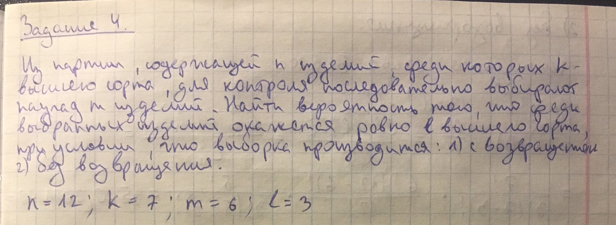 Задание 4.
Из партии, содержащей n изделий, среди которых k-
высшего сорта, для контроля последовательно выбирают
наугад m изделий. Найти вероятность того, что среди
выбранных изделий окажется ровно l высшего сорта,
при условии, что выборка производится: 1) с возвращением
2) без возвращения.
n=12; k=7; m=6; l=3